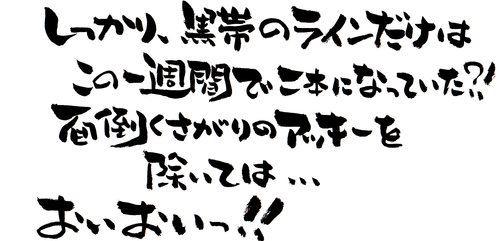 しっかり、黒帯のラインだけは
この一週間で二本になっていた?!
面倒くさがりのアッキーを
除いては...
おいおいっ!!